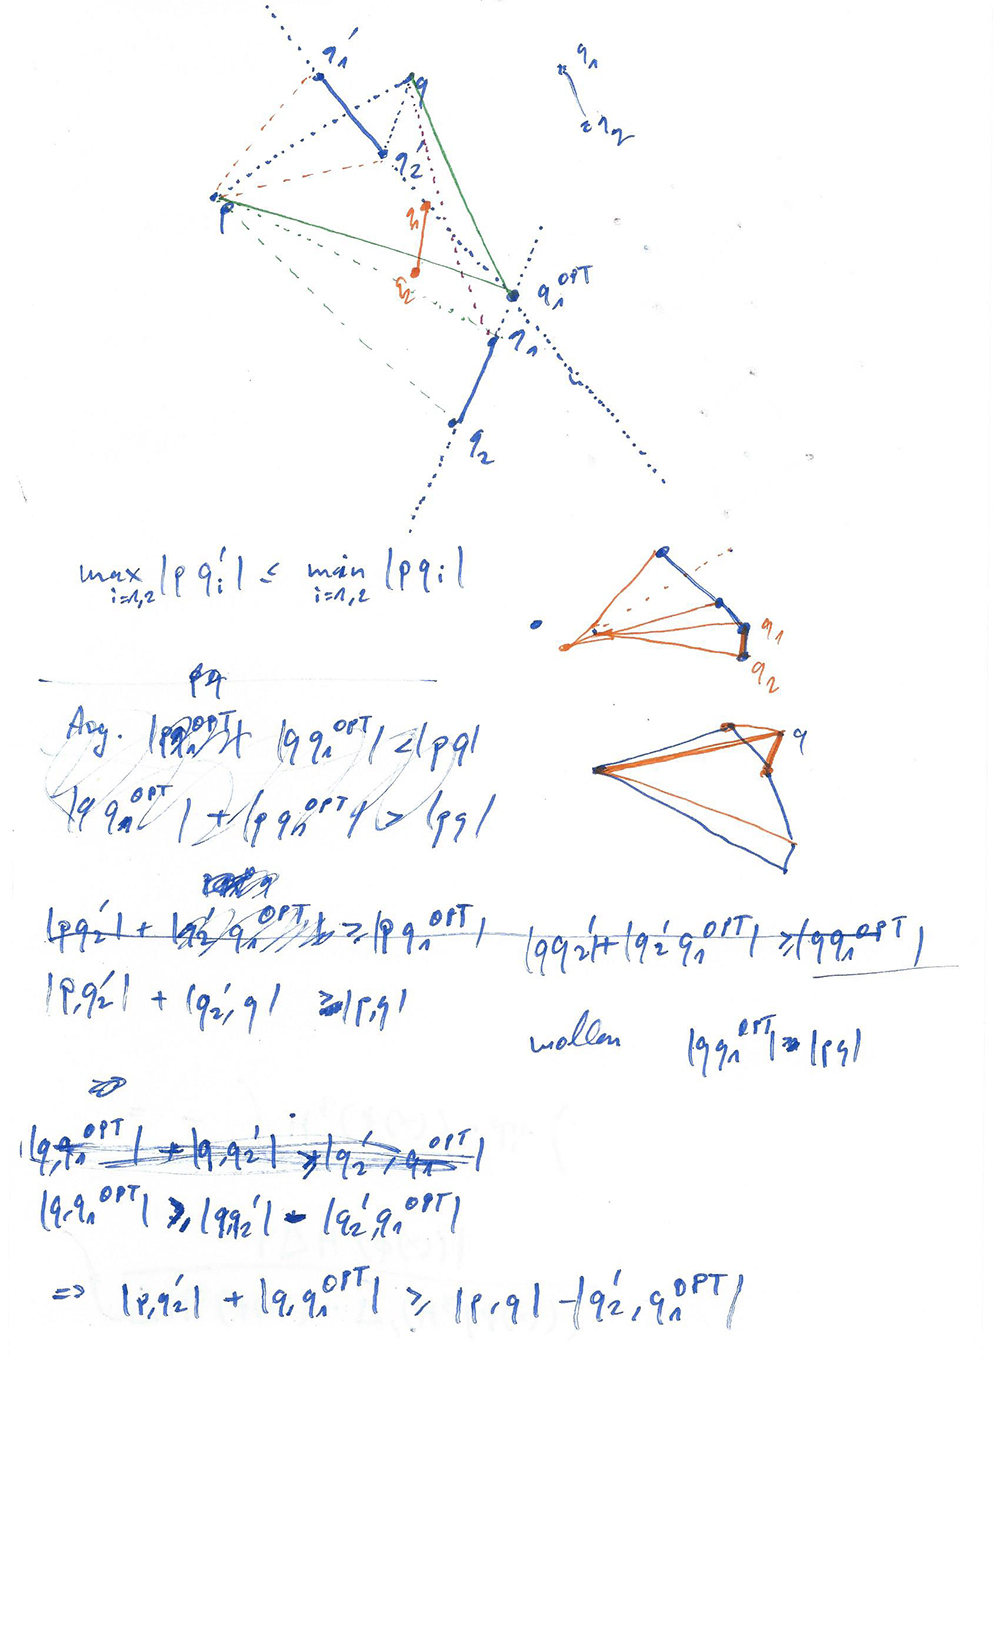 q₁'
q
q₁
q₂
q₂'
p
q₁
q₂
q₁^OPT
q₁
q₂
max |p q_i'| ≤ min |p q_i|
i=1,2 i=1,2
q₁
q₂
pq
Ang. |pq₁^OPT| + |q q₁^OPT| < |pq|
q
|q q₁^OPT| + |p q₁^OPT| > |pq|
|pq₂'| + |q₂' q₁^OPT| ≥ |p q₁^OPT|
|qq₂'| + |q₂' q₁^OPT| ≥ |qq₁^OPT|
|p,q₂'| + |q₂', q| ≥ |p,q|
wollen |qq₁^OPT| |pq|
⇒
|q,q₁^OPT| + |q,q₂'| ≥ |q₂', q₁^OPT|
|q,q₁^OPT| ≥ |q,q₂'| - |q₂',q₁^OPT|
⇒ |p,q₂'| + |q,q₁^OPT| ≥ |p,q| - |q₂', q₁^OPT|